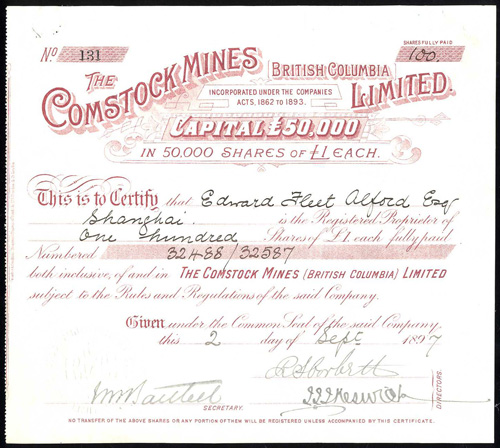 No 131
SHARES FULLY PAID
100.
THE
COMSTOCK MINES
BRITISH COLUMBIA
LIMITED.
INCORPORATED UNDER THE COMPANIES
ACTS, 1862 TO 1893.
CAPITAL £50,000
IN 50,000 SHARES OF £1 EACH.
This is to Certify that Edward Fleet Alford Esqr
Shanghai. is the Registered Proprietor of
One Hundred Shares of £1. each fully paid
Numbered 32488/32587
both inclusive, of and in THE COMSTOCK MINES (BRITISH COLUMBIA) LIMITED
subject to the Rules and Regulations of the said Company.
Given under the Common Seal of the said Company,
this 2 day of Sept 1897
SECRETARY.
DIRECTORS.
NO TRANSFER OF THE ABOVE SHARES OR ANY PORTION OF THEM WILL BE REGISTERED UNLESS ACCOMPANIED BY THIS CERTIFICATE.